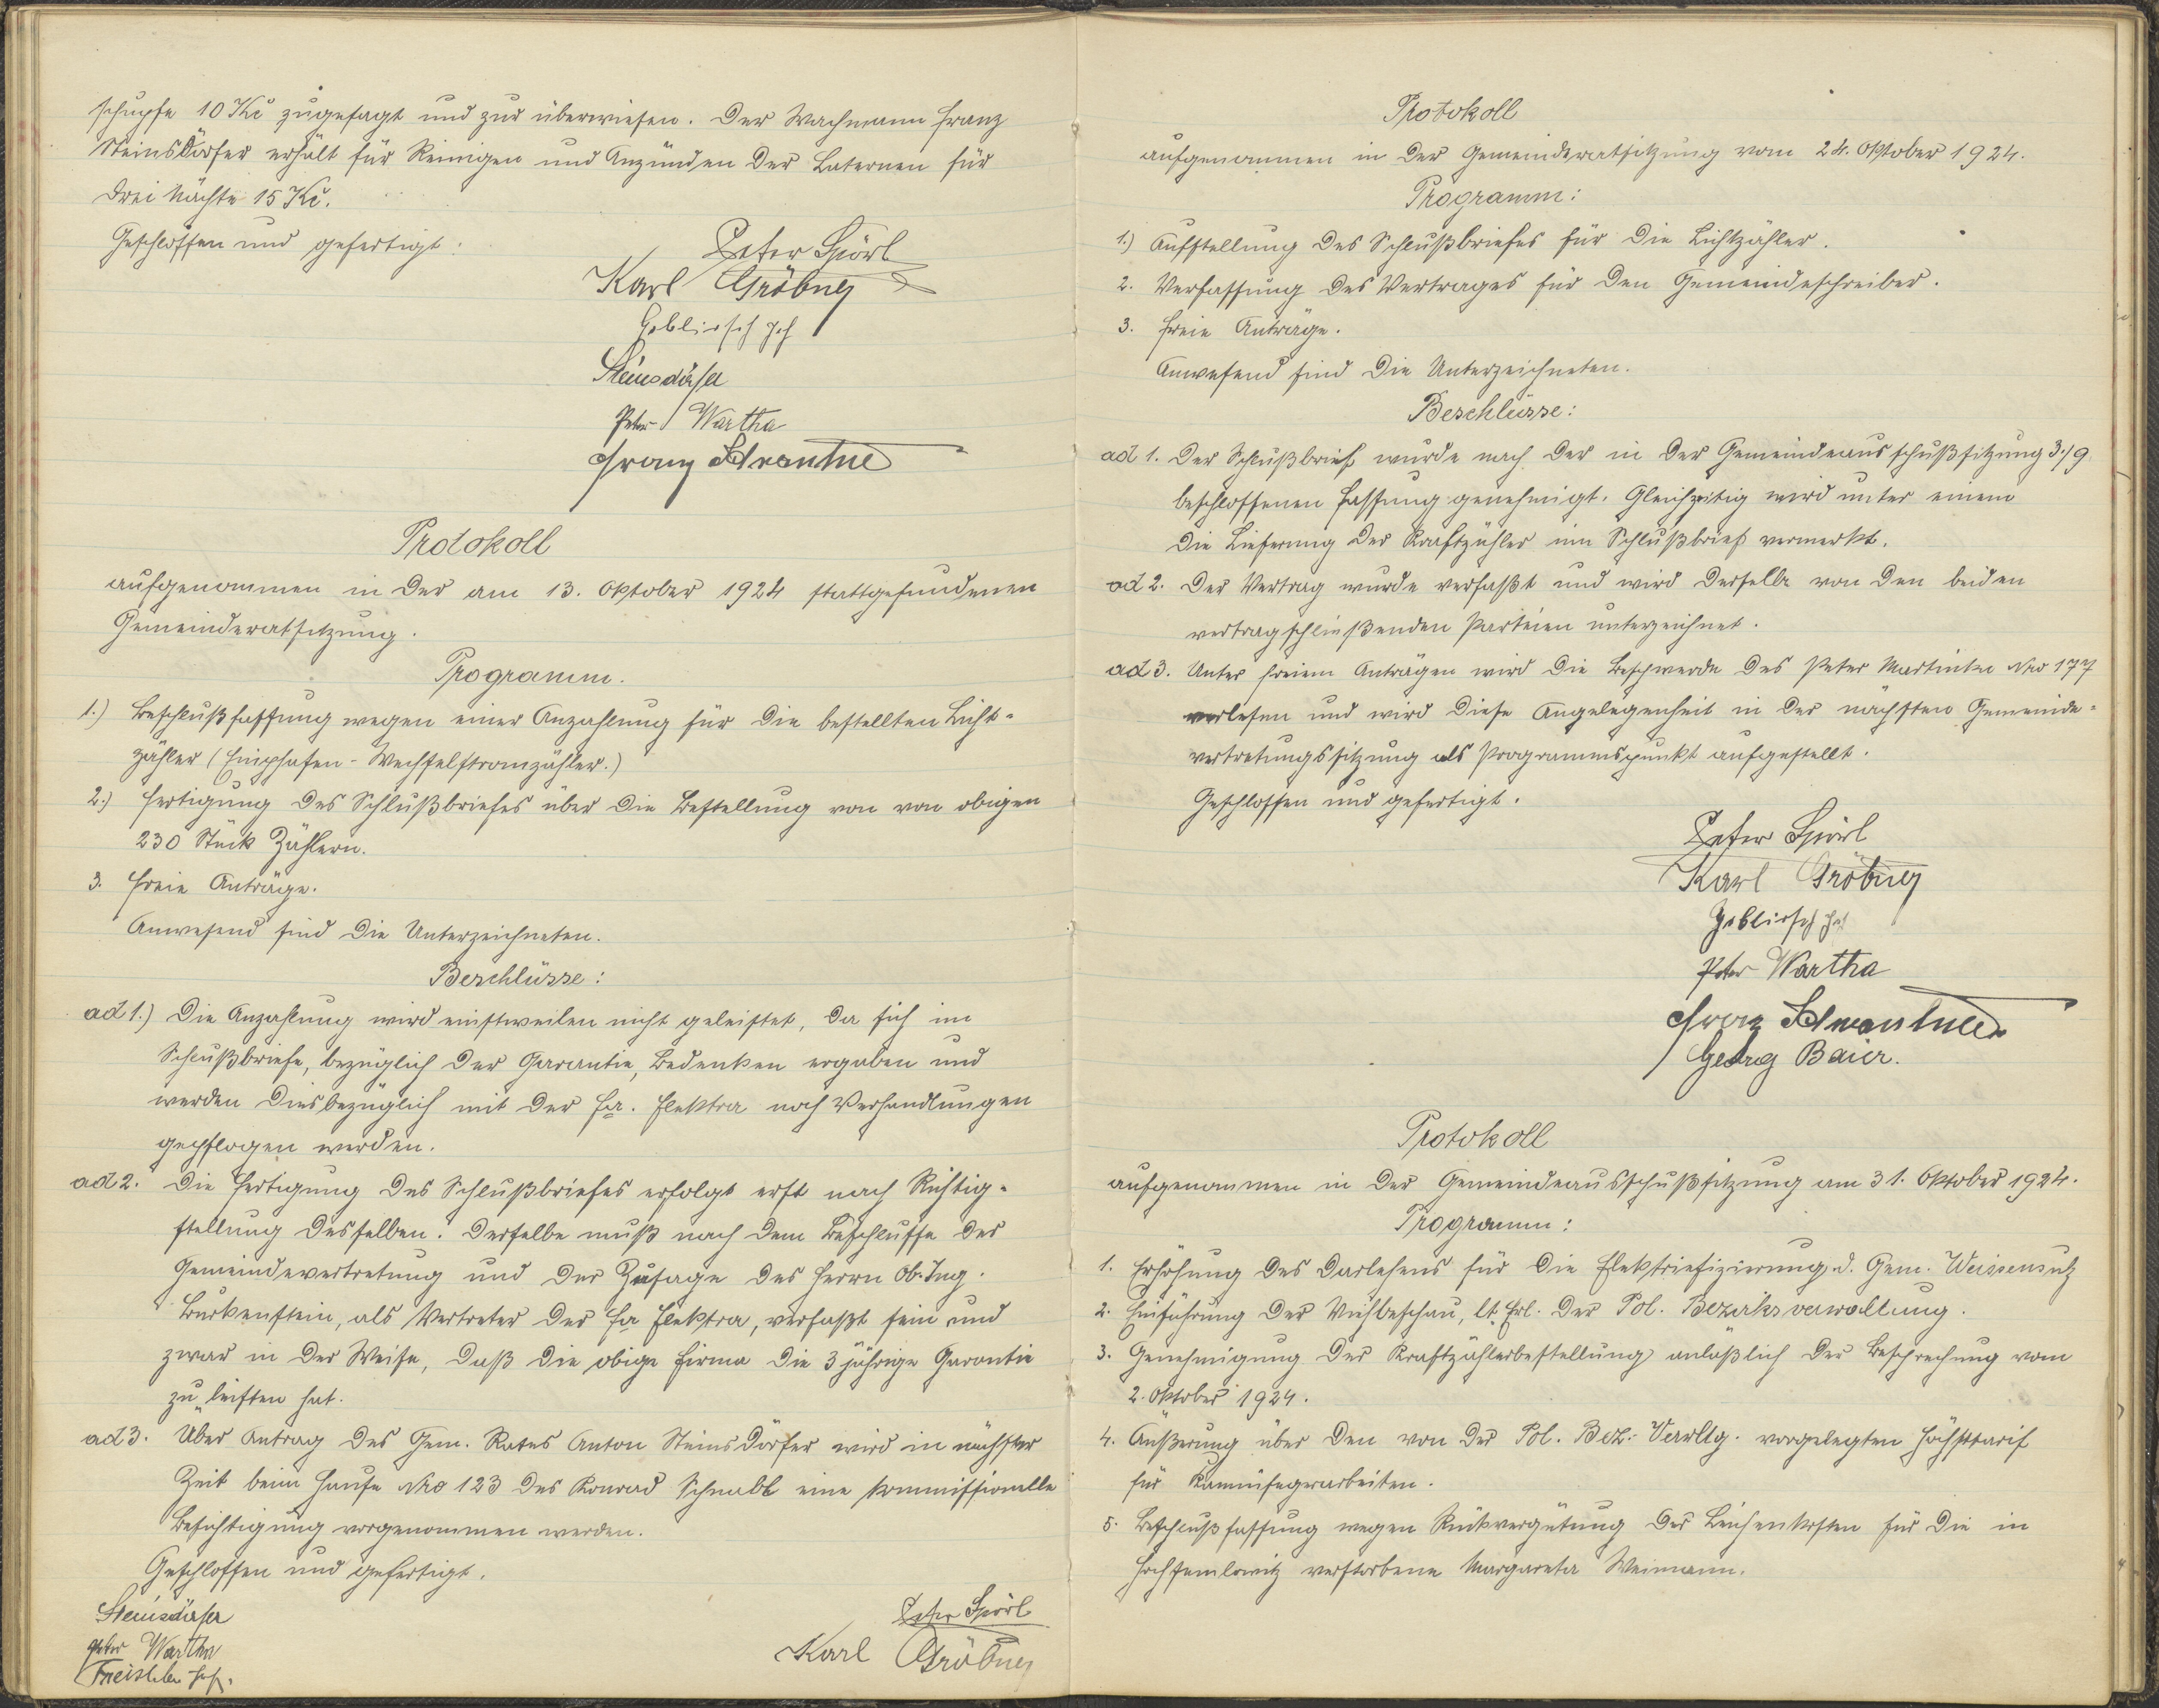 schupfe 10 Kč zugesagt und zur überwiesen. Der Wachmann Franz
Steinsdörfer erhält für Reinigen und Anzünden der Laternen für
drei Nächte 15 Kč.
Geschlossen und gefertigt:
Peter Spörl
Karl Gröbner
Gebliersch Jos
Steinsdörfer
Peter Wartha
Franz Schwantner
Protokoll
aufgenommen in der am 13. Oktober 1924 stattgefundenen
Gemeinderatsitzung.
Programm.
1.) Beschlußfassung wegen einer Anzahlung für die bestellten Licht-
zähler (Einphasen-Wechselstromzähler.)
2.) Fertigung des Schlußbriefes über die Bestellung von von obigen
230 Stück Zählern.
3. Freie Anträge.
Anwesend sind die Unterzeichneten.
Beschlüsse:
ad 1.) Die Anzahlung wird einstweilen nicht geleistet, da sich im
Schlußbriefe, bezüglich der Garantie, Bedenken ergaben und
werden diesbezüglich mit der Fa. Elektra noch Verhandlungen
gepflogen werden.
ad 2. Die Fertigung des Schlußbriefes erfolgt erst nach Richtig-
stellung desselben. Derselbe muß nach dem Beschlusse der
Gemeindevertretung und der Zusage des Herrn Ob. Ing.
Burkenstein, als Vertreter der Fa Elektra, verfaßt sein und
zwar in der Weise, daß die obige Firma die 3 jährige Garantie
zu leisten hat.
ad 3. Über Antrag des Gem. Rates Anton Steinsdörfer wird in nächster
Zeit beim Hause Nro 123 des Konrad Schnabl eine kommissionelle
Besichtigung vorgenommen werden.
Geschlossen und gefertigt.
Steinsdörfer
Peter Wartha
Freisleben Jos.
Peter Spörl
Karl Gröbner
Protokoll
aufgenommen in der Gemeinderatsitzung vom 24. Oktober 1924.
Programm:
1.) Aufstellung des Schlußbriefes für die Lichtzähler.
2. Verfassung des Vertrages für den Gemeindeschreiber.
3. Freie Anträge.
Anwesend sind die Unterzeichneten.
Beschlüsse:
ad 1. Der Schlußbrief wurde nach der in der Gemeindeausschußsitzung 3./9.
beschlossenen Fassung genehmigt. Gleichzeitig wird unter einem
die Lieferung der Kraftzähler im Schlußbrief vermerkt.
ad 2. Der Vertrag wurde verfaßt und wird derselbe von den beiden
vertragschließenden Parteien unterzeichnet.
ad 3. Unter freien Anträgen wird die Beschwerde des Peter Martinke Nro 177
verlesen und wird diese Angelegenheit in der nächsten Gemeinde-
vertretungssitzung als Programmspunkt aufgestellt.
Geschlossen und gefertigt.
Peter Spörl
Karl Gröbner
Gebliersch Jos
Peter Wartha
Franz Schwantner
Georg Baier.
Protokoll
aufgenommen in der Gemeindeausschußsitzung am 31. Oktober 1924.
Programm:
1. Erhöhung des Darlehens für die Elektriefizierung d. Gem. Weissensulz
2. Einführung der Viehbeschau, lt. Erl. der Pol. Bezirksverwaltung.
3. Genehmigung der Kraftzählerbestellung anläßlich der Besprechung vom
2. Oktober 1924.
4. Äußerung über den von der Pol. Bez. Verwltg. vorgelegten Höchsttarif
für Kaminfegerarbeiten.
5. Beschlußfassung wegen Rückvergütung der Leichenkosten für die in
Hochsemlowitz verstorbene Margareta Weimann.